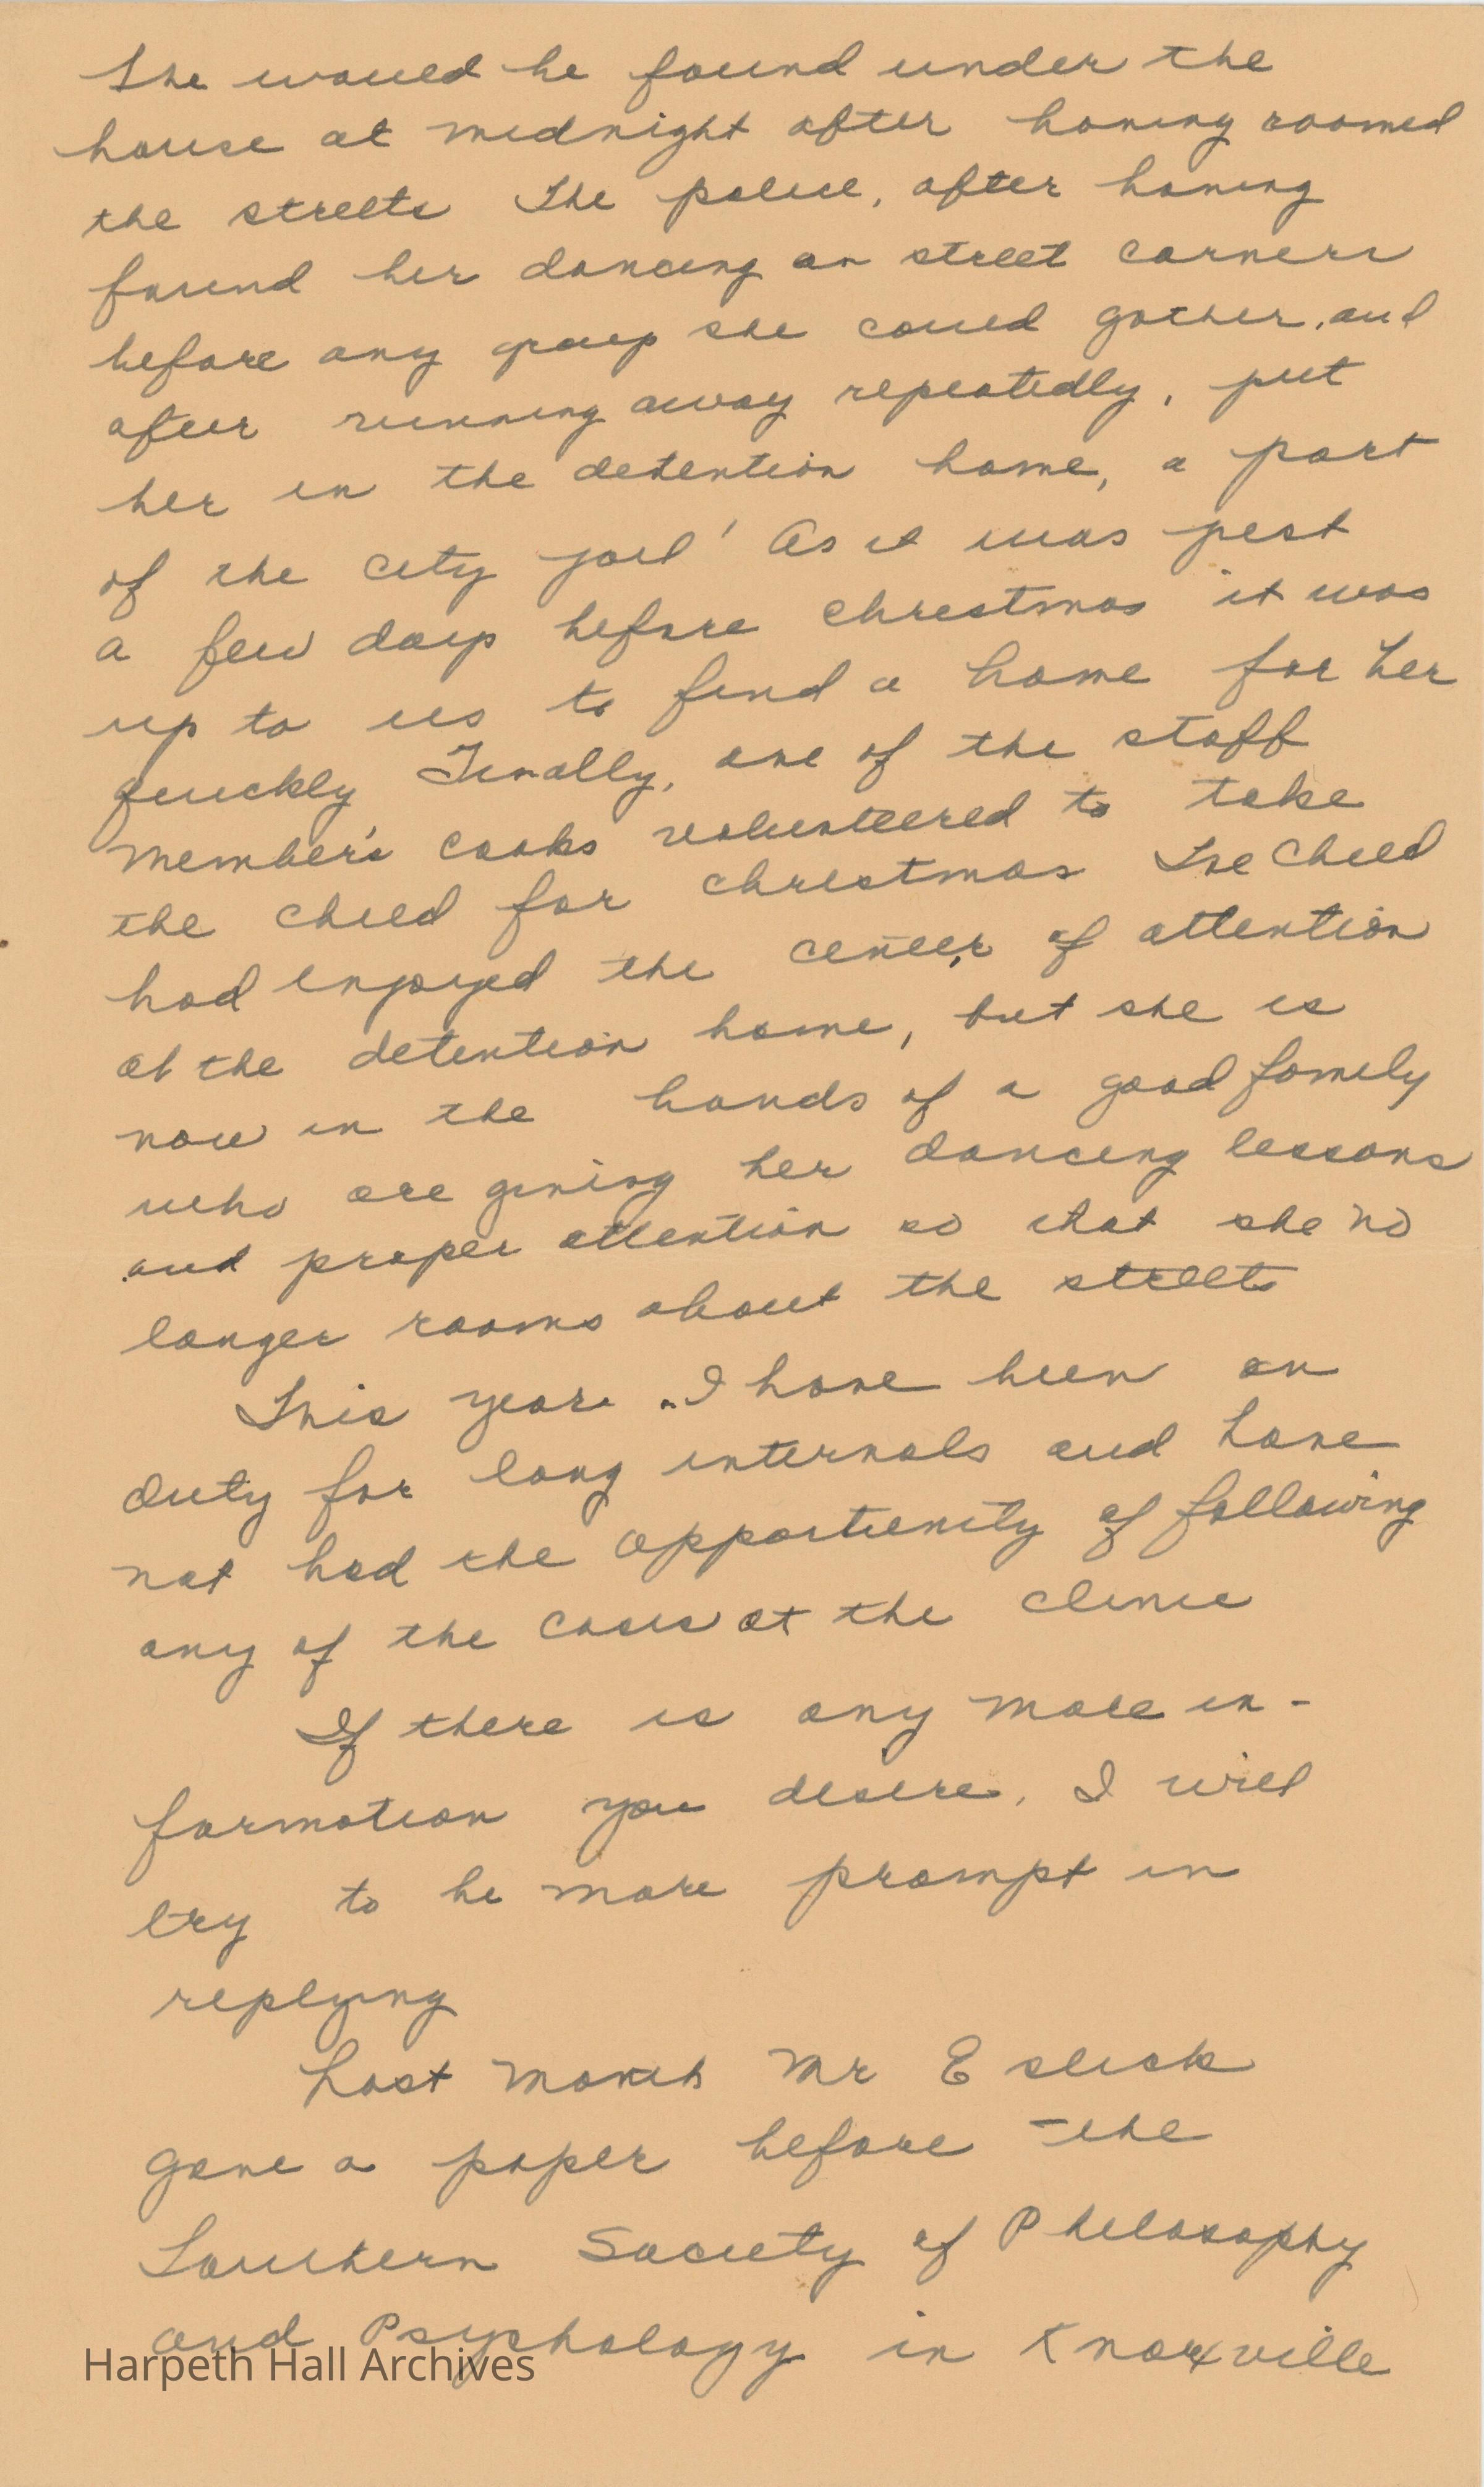 She would be found under the
house at midnight after having roamed
the streets The police, after having
found her dancing on street corners
before any group she could gather, and
after running away repeatedly, put
her in the detention home, a part
of the city jail! As it was just
a few days before christmas it was
up to us to find a home for her
quickly Finally, one of the staff
member's cooks volunteered to take
the child for christmas The child
had enjoyed the center of attention
at the detention home, but she is
now in the hands of a good family
who are giving her dancing lessons
and proper attention so that she no
longer roams about the streets
This year I have been on
duty for long intervals and have
not had the opportunity of following
any of the cases at the clinic
If there is any more in-
formation you desire, I will
try to be more prompt in
replying
Last month Mr Eslick
gave a paper before the
Southern Society of Philosophy
and Psychology in Knoxville
Harpeth Hall Archives